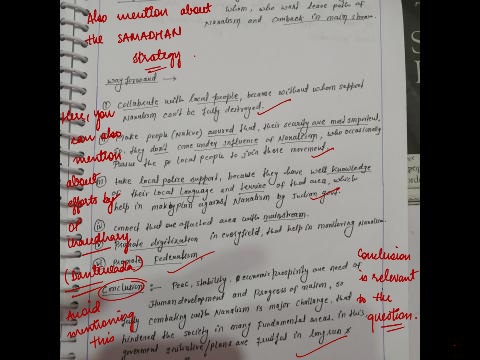 Also mention about
the SAMADHAN
strategy.
whom, who want leave path of
Naxalism and comback in main stream.
way forward →
① Collaborate with local people, because without whom support
Naxalism can't be fully destroyed.
make people (Native) assured that, their security are most important,
so they don't come under influence of Naxalism, who occasionally
the local people to join those movement.
iii) take local police support, because they have well knowledge
of their local language and terrine of that area, which
help in make plan against Naxalism by Indian govt.
iv) connect that are affected area with mainstream.
v) Promote digitization in every field, that help in monitoring Naxalism.
vi) Promote Federalism
Here, you
can also
mention
about
efforts by
OP
Chaudhary
(Dantewada)
Conclusion :— Peac, stability & economic prospirity are need of
Human development and Progress of nation, so
fully Combating with Naxalism is major challange, that
hindered the society in many fundamental areas. in this
government initiative/plans are fruitful in long run
Avoid
mentioning
this
Conclusion
is relevant
to the
question.